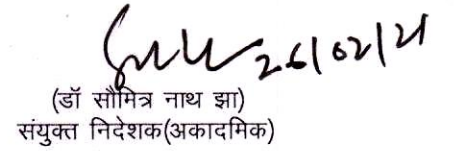 26/02/21
(डॉ सौमित्र नाथ झा)
संयुक्त निदेशक(अकादमिक)